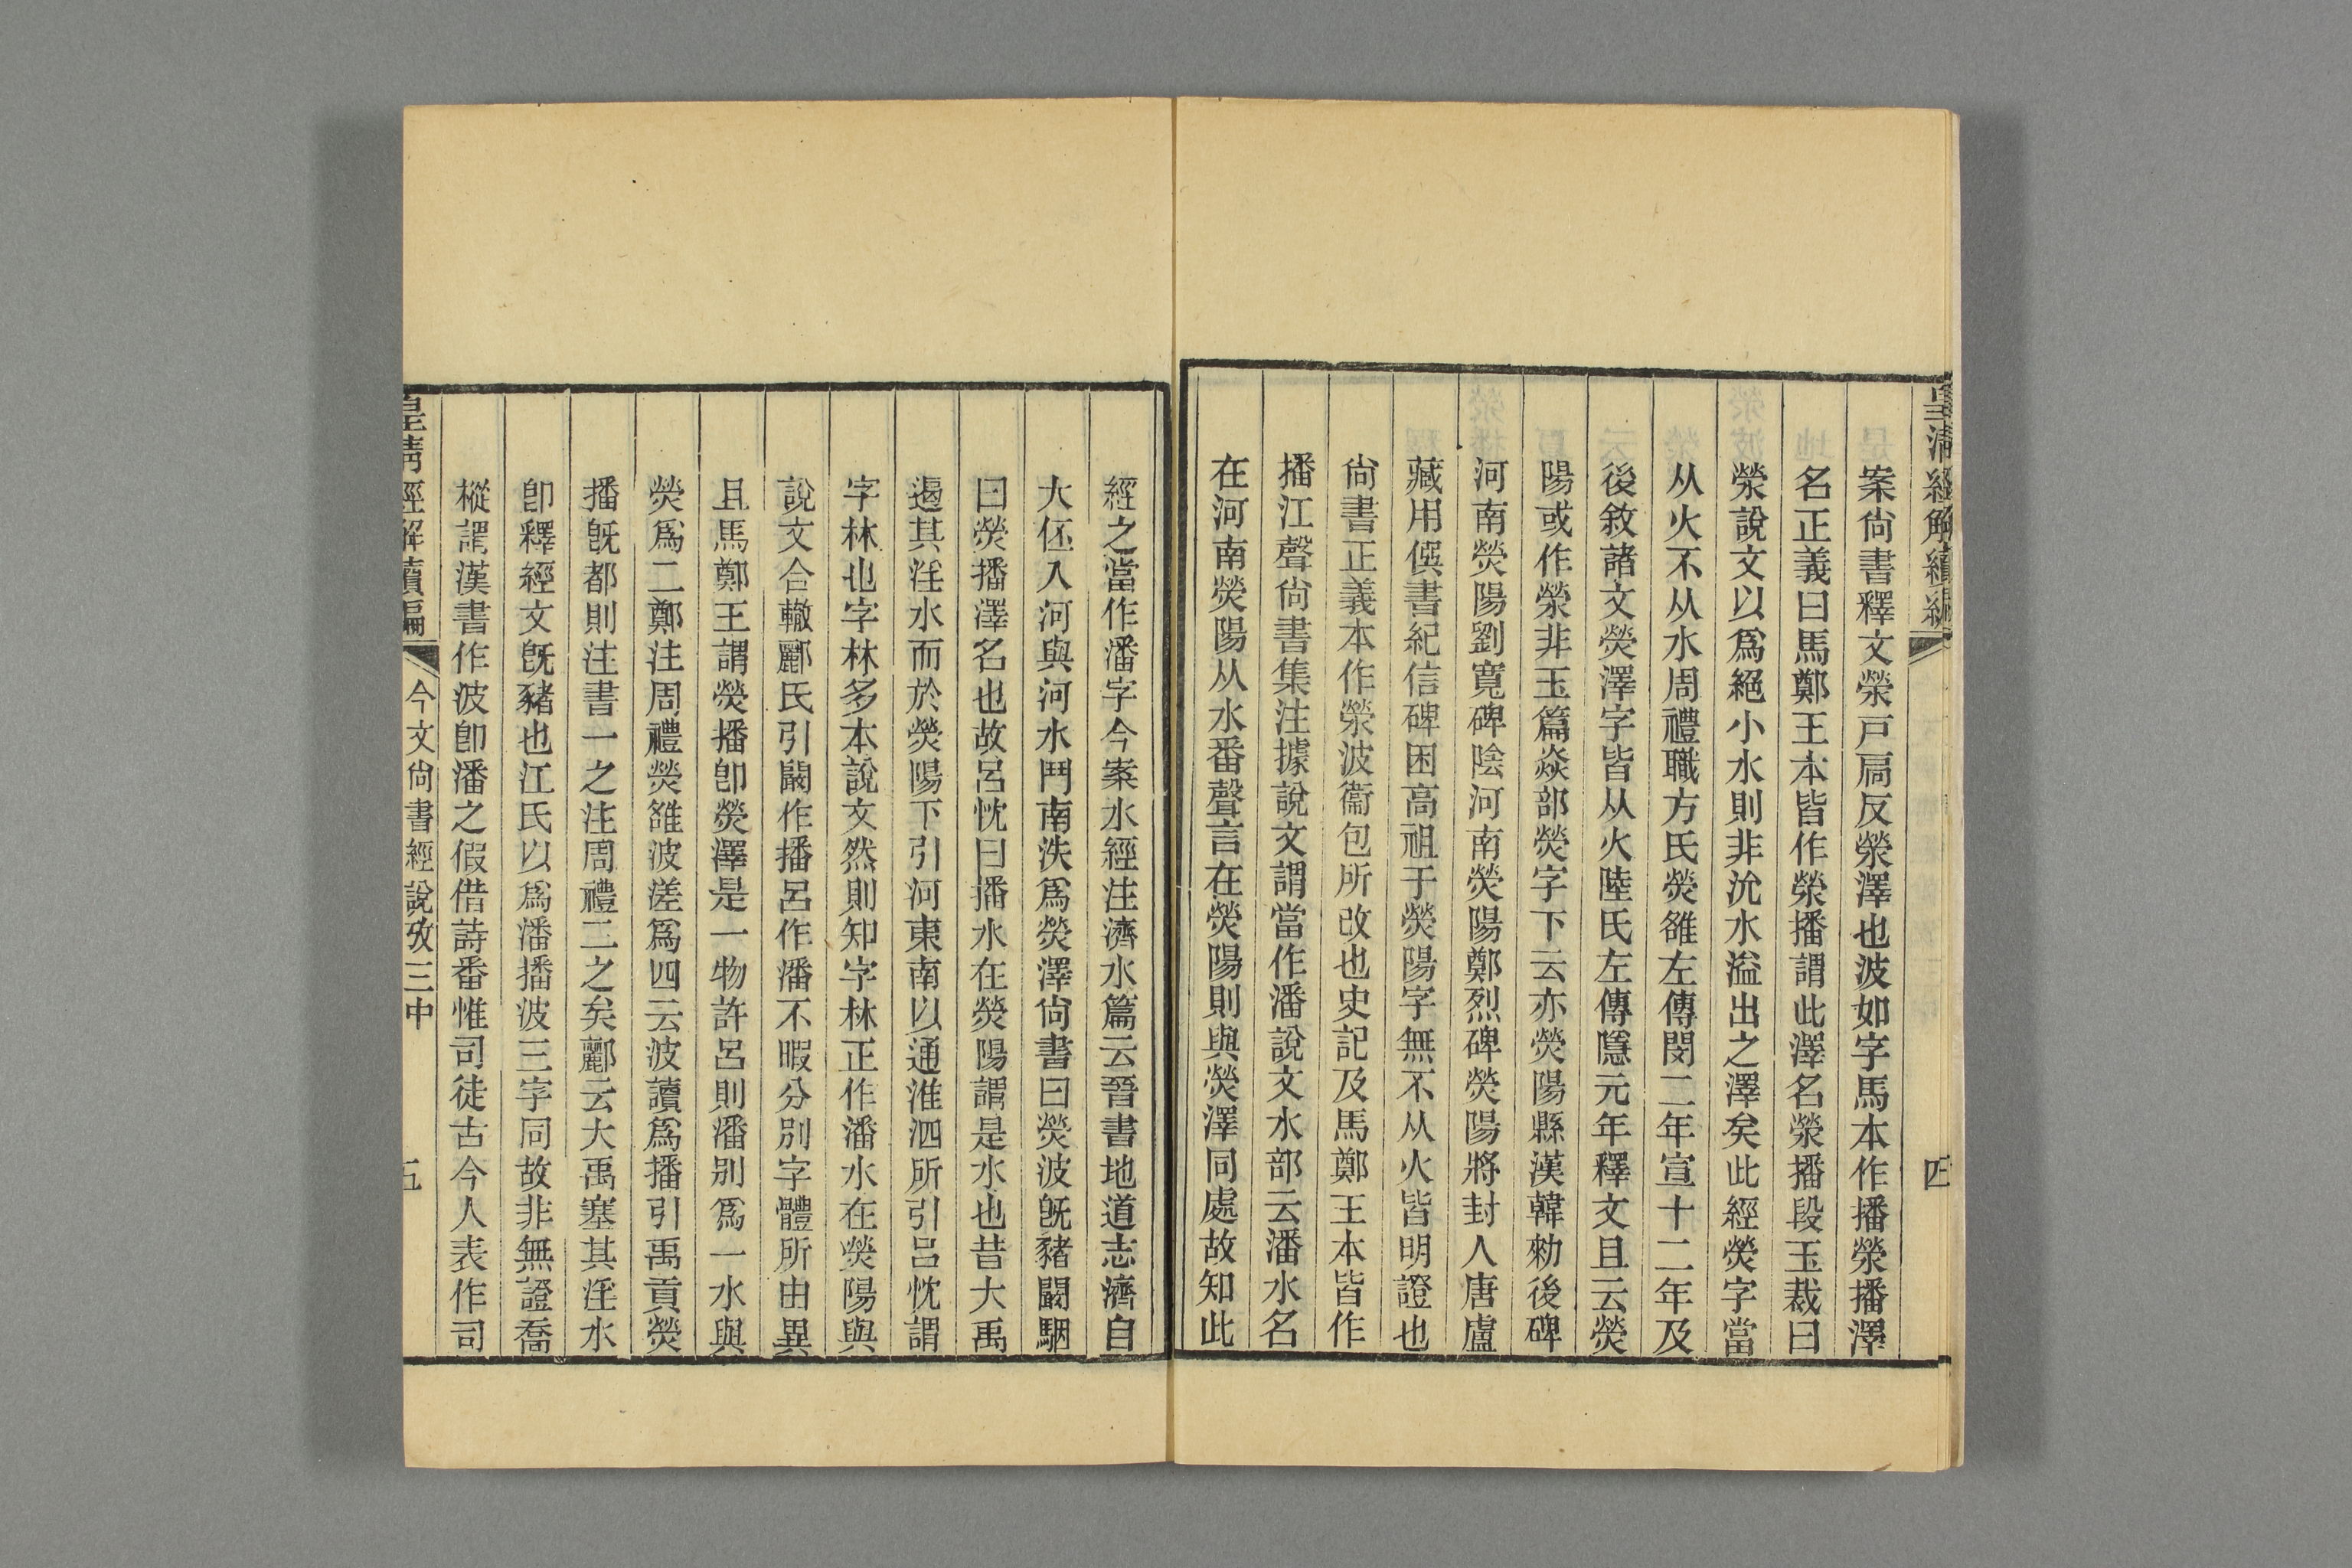 皇清經解續編
四
案尙書釋文滎戸扃反滎澤也波如字馬本作播滎播澤
名正義曰馬鄭王本皆作滎播謂此澤名滎播段玉裁曰
滎說文以爲絕小水則非沇水溢出之澤矣此經熒字當
从火不从水周禮職方氏熒雒左傳閔二年宣十二年及
後敘諸文熒澤字皆从火陸氏左傳隱元年釋文且云熒
陽或作滎非玉篇焱部熒字下云亦熒陽縣漢韓勑後碑
河南熒陽劉寬碑陰河南熒陽鄭烈碑熒陽將封人唐盧
藏用僎書紀信碑困高祖于熒陽字無不从火皆明證也
尙書正義本作滎波衞包所改也史記及馬鄭王本皆作
播江聲尙書集注據說文謂當作潘說文水部云潘水名
在河南熒陽从水番聲言在熒陽則與熒澤同處故知此
經之當作潘字今案水經注濟水篇云晉書地道志濟自
大伾入河與河水鬥南泆爲熒澤尙書曰熒波旣豬闞駰
曰熒播澤名也故呂忱曰播水在熒陽謂是水也昔大禹
遏其淫水而於熒陽下引河東南以通淮泗所引呂忱謂
字林也字林多本說文然則知字林正作潘水在熒陽與
說文合轍酈氏引闞作播呂作潘不暇分別字體所由異
且馬鄭王謂熒播卽熒澤是一物許呂則潘別爲一水與
熒爲二鄭注周禮熒雒波溠爲四云波讀爲播引禹貢熒
播旣都則注書一之注周禮二之矣酈云大禹塞其淫水
卽釋經文旣豬也江氏以爲潘播波三字同故非無證喬
樅謂漢書作波卽潘之假借詩番惟司徒古今人表作司
皇清經解續編
今文尙書經說攷三中
五